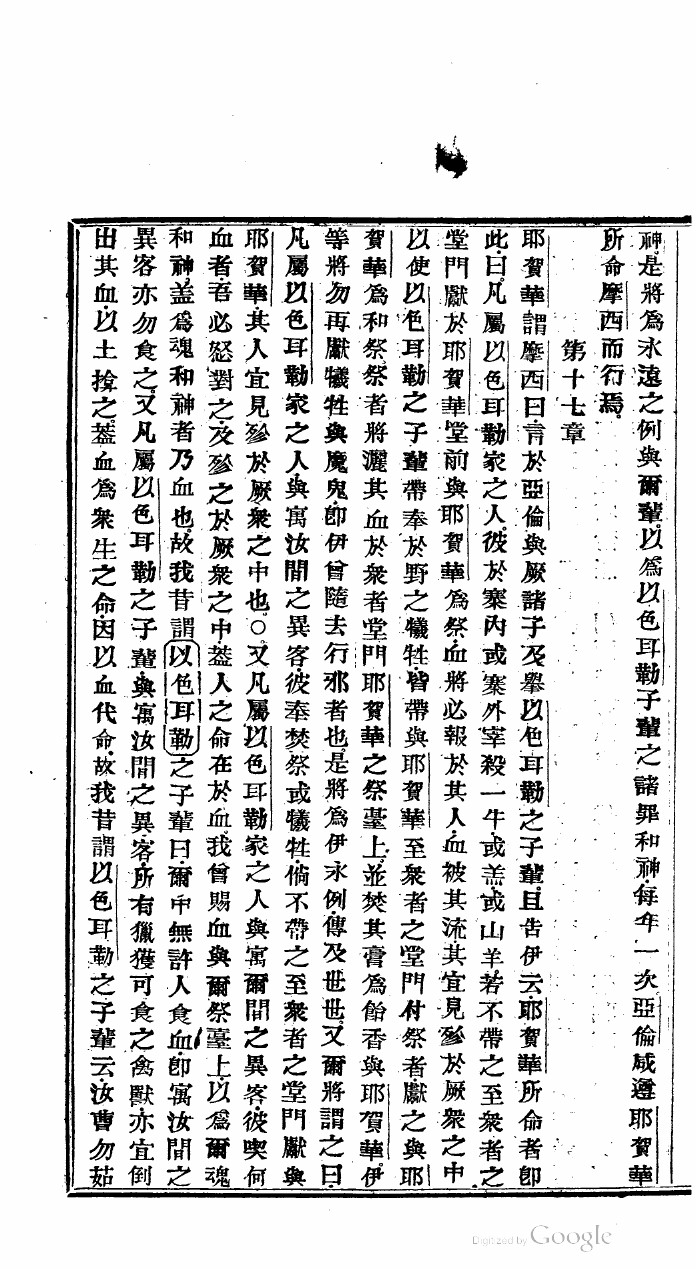 神是將爲永遠之例與爾輩以爲以色耳勒子輩之諸罪和神每年一次亞倫咸遵耶賀華
所命摩西而行焉
第十七章
耶賀華謂摩西曰言於亞倫與厥諸子及舉以色耳勒之子輩且告伊云耶賀華所命者卽
此曰凡屬以色耳勒家之人彼於寨內或寨外宰殺一牛或羔或山羊若不帶之至衆者之
堂門獻於耶賀華堂前與耶賀華爲祭血將必報於其人血被其流其宜見殄於厥衆之中
以使以色耳勒之子輩帶奉於野之犧牲皆帶與耶賀華至衆者之堂門付祭者獻之與耶
賀華爲和祭祭者將灑其血於衆者堂門耶賀華之祭䑓上並焚其膏爲飴香與耶賀華伊
等將勿再獻犧牲與魔鬼卽伊曾隨去行邪者也是將爲伊永例傳及世世又爾將謂之曰
凡屬以色耳勒家之人與寓汝間之異客彼奉焚祭或犧牲倘不帶之至衆者之堂門獻與
耶賀華其人宜見殄於厥衆之中也○又凡屬以色耳勒家之人與寓爾間之異客彼喫何
血者吾必怒對之及殄之於厥衆之中葢人之命在於血我曾賜血與爾祭臺上以爲爾魂
和神葢爲魂和神者乃血也故我昔謂以色耳勒之子輩曰爾中無許人食血卽寓汝間之
異客亦勿食之又凡屬以色耳勒之子輩與寓汝間之異客所有獵獲可食之禽獸亦宜倒
出其血以土揜之葢血爲衆生之命因以血代命故我昔謂以色耳勒之子輩云汝曹勿茹
Digitized by Google